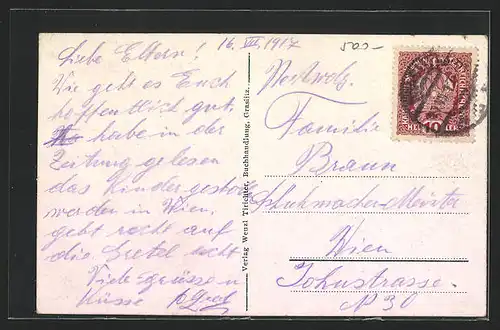 16. VII. 1917
500-
Liebe Eltern!
Wie geht es Euch
hoffentlich gut.
habe in der
Zeitung gelesen
das Kinder gestohlen
werden in Wien,
gebt recht auf
die Gretel acht
Viele grüsse u
Küsse
Verlag Wenzl Tirichter, Buchhandlung, Graslitz.
Familie
Braun
Schuhmacher Meister
Wien
Johnstrasse
N 30
10
HELLER